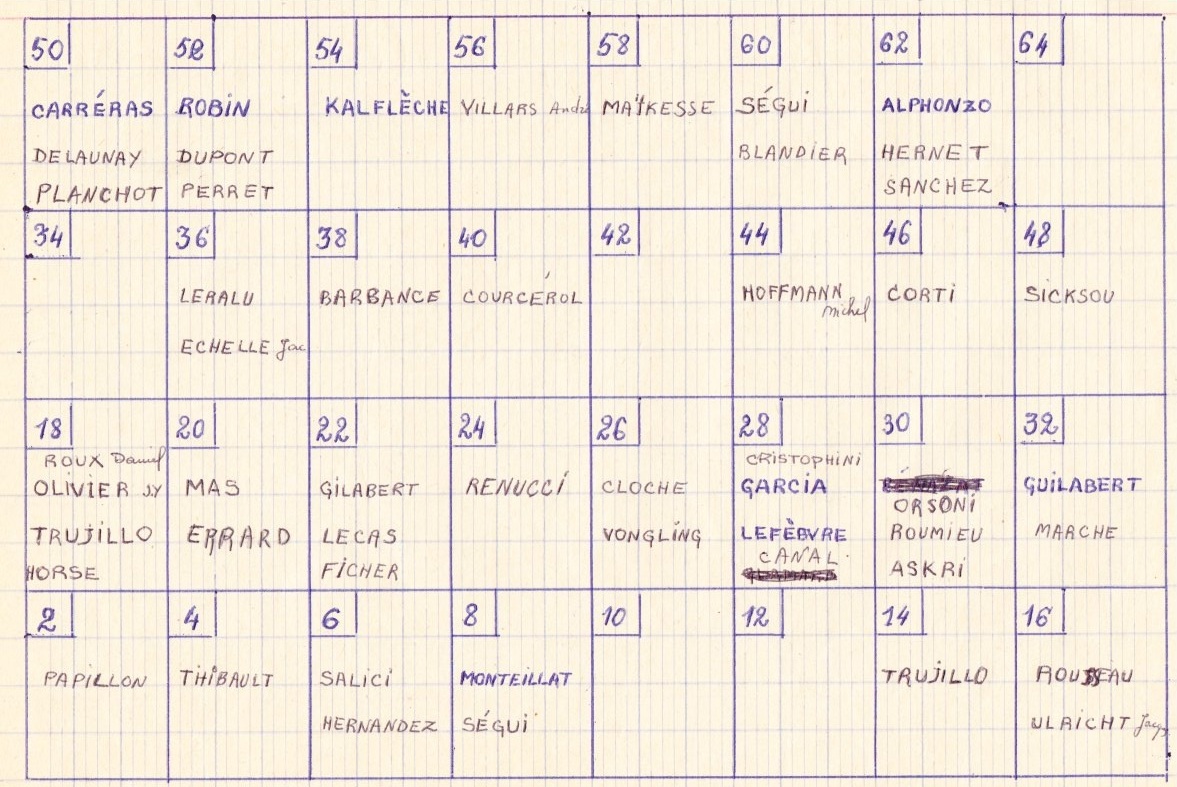 50 52 54 56 58 60 62 64
CARRÉRAS ROBIN KALFLÈCHE VILLARS André MAÏKESSE SÉGUI ALPHONZO
DELAUNAY DUPONT BLANDIER HERNET
PLANCHOT PERRET SANCHEZ
34 36 38 40 42 44 46 48
LERALU BARBANCE COURCÉROL HOFFMANN CORTI SICKSOU
Michel
ECHELLE Jac
18 20 22 24 26 28 30 32
ROUX Daniel CRISTOPHINI
OLIVIER J.Y MAS GILABERT RENUCCI CLOCHE GARCIA GUILABERT
ORSONI
TRUJILLO ERRARD LECAS VONGLING LEFÈBVRE ROUMIEU MARCHE
CANAL
HORSE FICHER ASKRI
2 4 6 8 10 12 14 16
PAPILLON THIBAULT SALICI MONTEILLAT TRUJILLO ROUSSEAU
HERNANDEZ SÉGUI ULRICHT